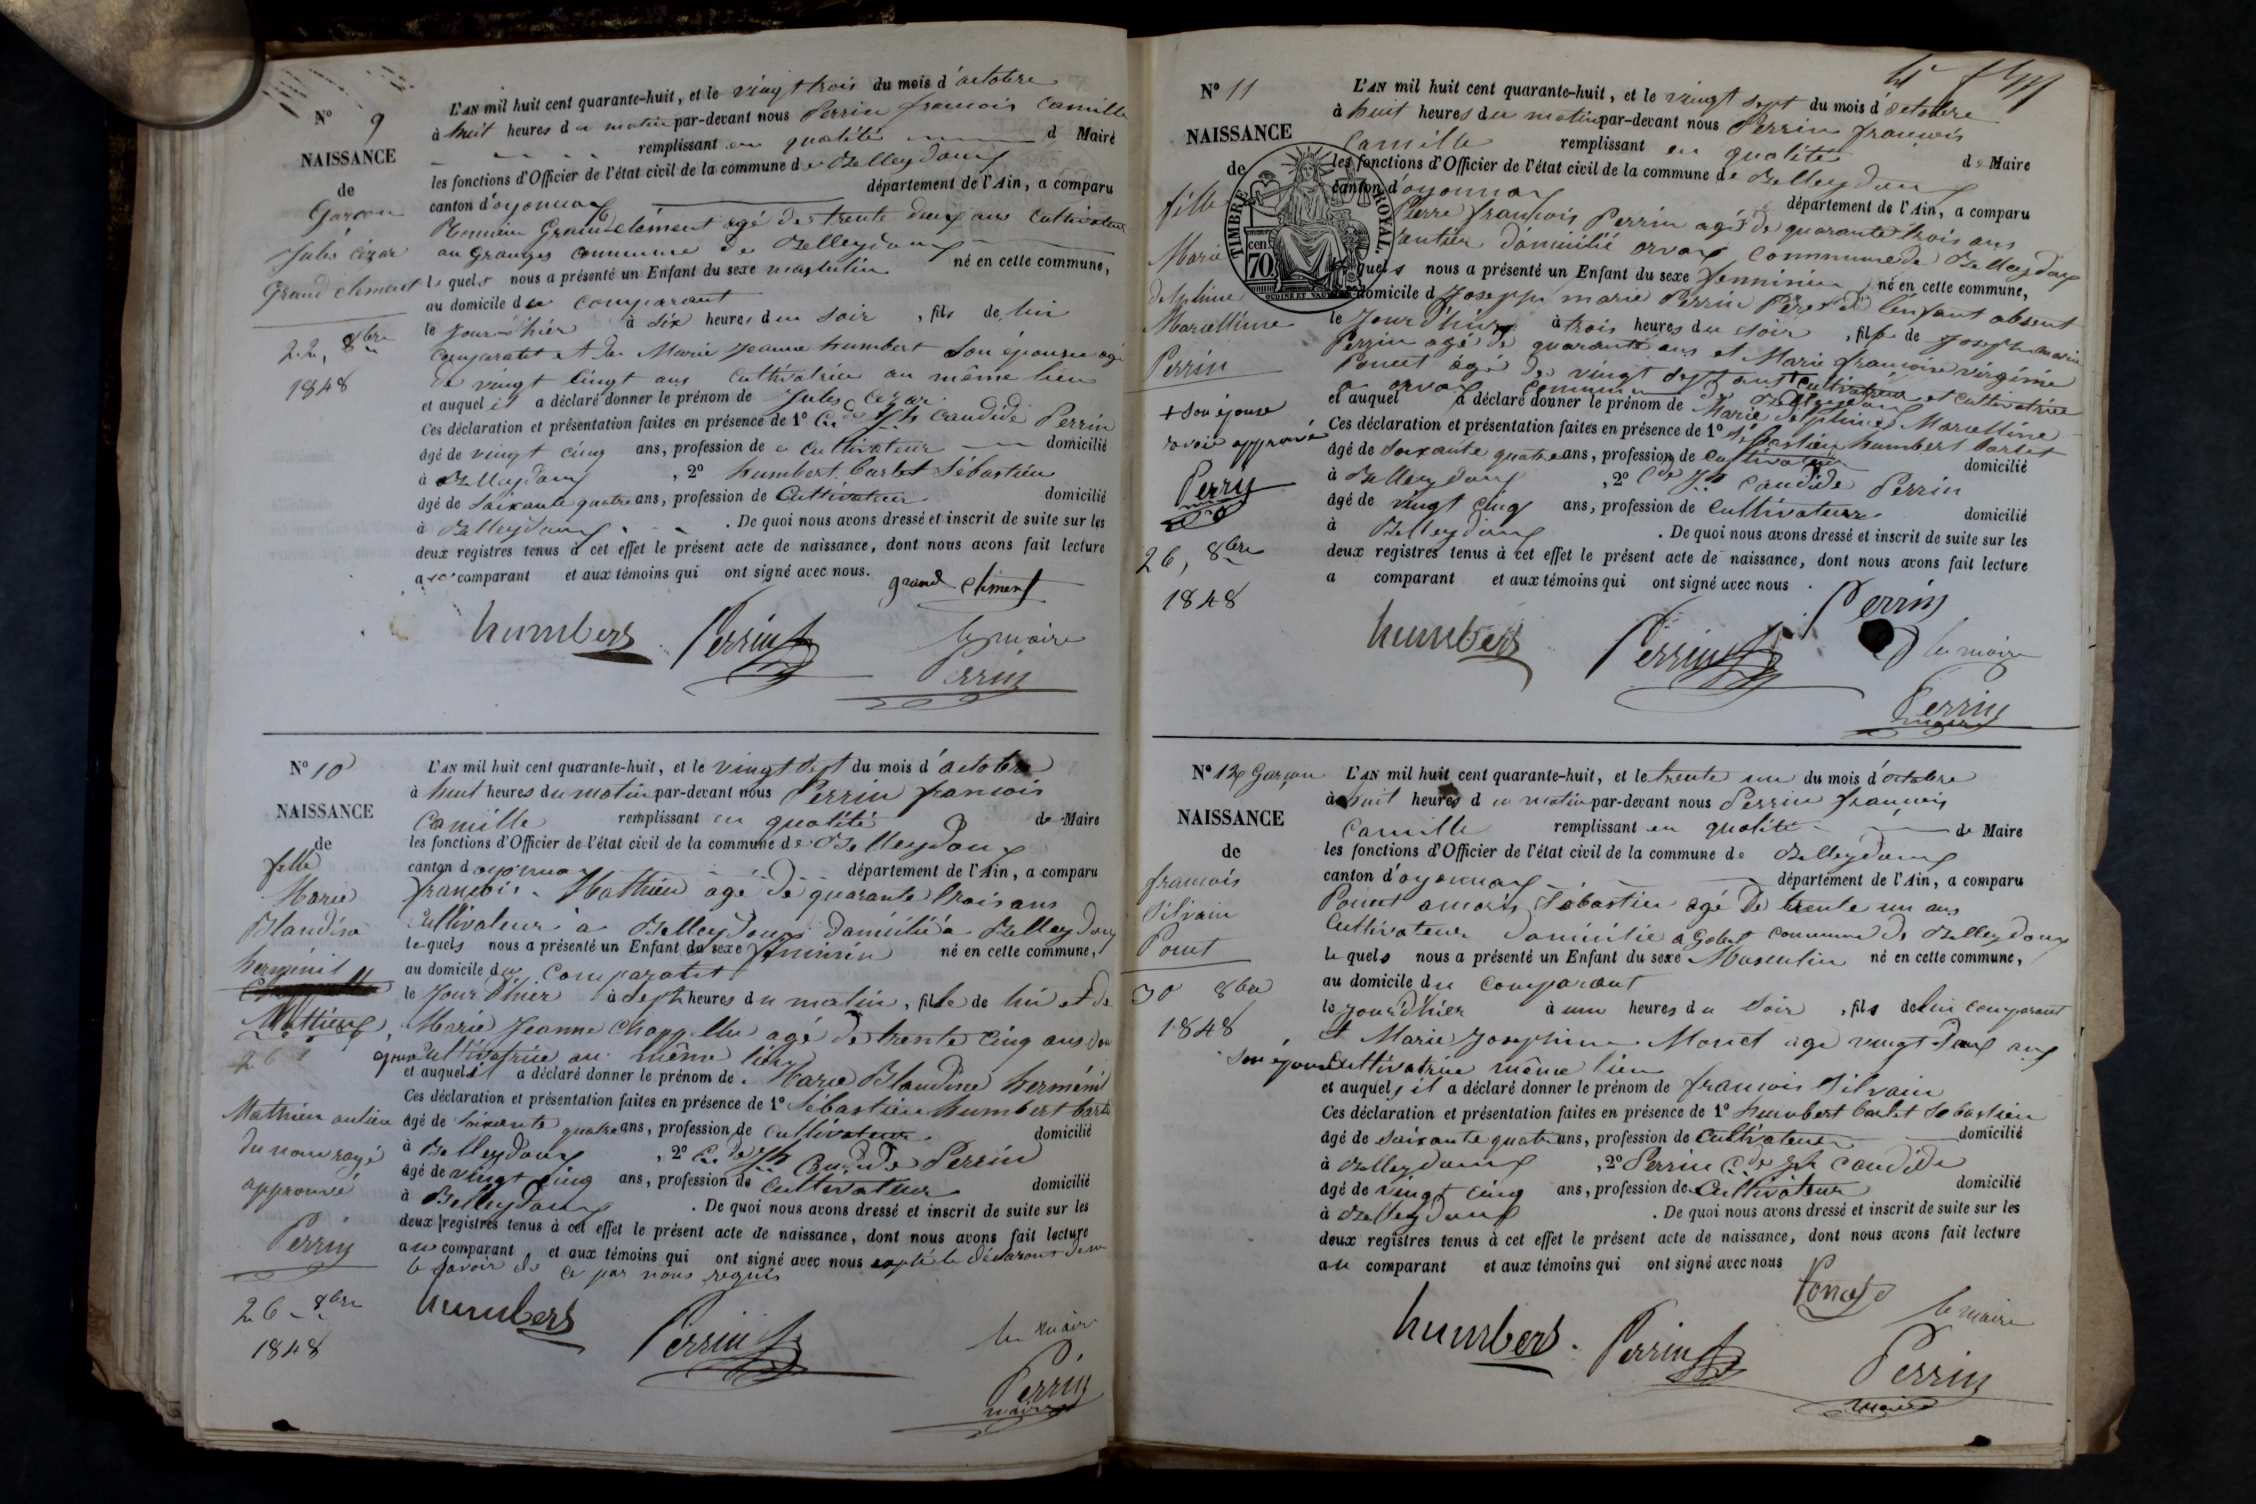 N° 9
NAISSANCE
de
Garcon
Jules Cézar
Grand clément
22, 8bre
1848
L'AN mil huit cent quarante-huit, et le vingt trois du mois d'actobre
à huit heures du matin par-devant nous Perrin francois Camille
remplissant en qualité d Maire
les fonctions d'Officier de l'état civil de la commune de Belleydoux
canton d'oyonnax département de l'Ain, a comparu
Grand clément agé de trente deux ans Cultivateur
au Granges Commune de Belleydoux
le quel nous a présenté un Enfant du sexe masculin né en cette commune,
au domicile du Comparant
le jour d'hier à six heures du soir, fils de lui
Comparatet et de Marie jeanne humbert Son épouse agé
de vingt Cingt ans Cultivatrice au même lieu
et auquel il a déclaré donner le prénom de Jules Cézar
Ces déclaration et présentation faites en présence de 1° Cde Jh Candide Perrin
âgé de vingt cinq ans, profession de Cultivateur domicilié
à Belleydoux, 2° humbert barlet Sébastien
âgé de Soixante quatre ans, profession de Cultivateur domicilié
à Belleydoux. De quoi nous avons dressé et inscrit de suite sur les
deux registres tenus à cet effet le présent acte de naissance, dont nous avons fait lecture
au comparant et aux témoins qui ont signé avec nous. grand clément
humbert Perrin le maire
Perrin
N° 10
NAISSANCE
de
fille
Marie
Blandine
herménil
Mathieu
26
Mathieu aulieu
du nom rayé
approuvé
Perrin
26 8bre
1848
L'AN mil huit cent quarante-huit, et le vingt sept du mois d'actobre
à huit heures du matin par-devant nous Perrin francois
Camille remplissant en qualité de Maire
les fonctions d'Officier de l'état civil de la commune de Belleydoux
canton d'oyonnax département de l'Ain, a comparu
francois Mathieu agé de quarante trois ans
Cultivateur à Belleydoux domicilié à Belleydoux
lequels nous a présenté un Enfant du sexe féminin né en cette commune,
au domicile du Comparatet
le Jour d'hier à sept heures du matin, fille de lui et de
Marie Jeanne Chappelle agé de trente Cinq ans Son
épouse Cultivatrice au même lieu
et auquel il a déclaré donner le prénom de Marie Blandine herménil
Ces déclaration et présentation faites en présence de 1° Sébastien humbert barlet
âgé de Soixante quatre ans, profession de Cultivateur domicilié
à Belleydoux, 2° Cde Jh Candide Perrin
âgé de vingt cinq ans, profession de Cultivateur domicilié
à Belleydoux. De quoi nous avons dressé et inscrit de suite sur les
deux registres tenus à cet effet le présent acte de naissance, dont nous avons fait lecture
au comparant et aux témoins qui ont signé avec nous
le savoir de ce par nous requis
humbert Perrin le maire
Perrin
maire
N° 11
NAISSANCE
de
fille
Marie
delphine
Marcelline
Perrin
+ son épouse
renvoie approuvé
Perrin
26, 8bre
1848
TIMBRE ROYAL
70 cen.
L'AN mil huit cent quarante-huit, et le vingt sept du mois d'octobre
à huit heures du matin par-devant nous Perrin francois
Camille remplissant en qualité de Maire
les fonctions d'Officier de l'état civil de la commune de Belleydoux
canton d'oyonnax département de l'Ain, a comparu
Pierre francois Perrin agé de quarante trois ans
domicilié orvaz Commune de Belleydoux
lequels nous a présenté un Enfant du sexe feminin né en cette commune,
au domicile d Joseph marie Perrin Père de l'enfant absent
le Jour d'hier à trois heures du soir, fille de Joseph marie
Perrin agé de quarante ans et Marie francoise virginie
Poncet agé de vingt sept ans + Cultivateur et Cultivatrice
a orvaz Commune de Belleydoux
et auquel a déclaré donner le prénom de Marie delphine Marcelline
Ces déclaration et présentation faites en présence de 1° Sébastien humbert barlet
âgé de soixante quatre ans, profession de Cultivateur domicilié
à Belleydoux, 2° Cde Jh Candide Perrin
âgé de vingt cinq ans, profession de Cultivateur domicilié
à Belleydoux. De quoi nous avons dressé et inscrit de suite sur les
deux registres tenus à cet effet le présent acte de naissance, dont nous avons fait lecture
a comparant et aux témoins qui ont signé avec nous.
Perrin
humbert Perrin le maire
Perrin
maire
N° 12 Garçon
NAISSANCE
de
francois
Silvain
Poncet
30 8bre
1848
L'AN mil huit cent quarante-huit, et le trente un du mois d'octobre
à huit heures du matin par-devant nous Perrin francois
Camille remplissant en qualité de Maire
les fonctions d'Officier de l'état civil de la commune de Belleydoux
canton d'oyonnax département de l'Ain, a comparu
Poncet Sébastien agé de trente un ans
Cultivateur domicilié a Gobet commune de Belleydoux
lequels nous a présenté un Enfant du sexe Masculin né en cette commune,
au domicile du Comparant
le jour d'hier à une heures du soir, fils de lui comparant
et Marie Josephine Monet age vingt deux ans
son épouse Cultivatrice même lieu
et auquel il a déclaré donner le prénom de francois Silvain
Ces déclaration et présentation faites en présence de 1° humbert barlet Sebastien
âgé de soixante quatre ans, profession de Cultivateur domicilié
à Belleydoux, 2° Perrin Cde Jh Candide
âgé de vingt cinq ans, profession de Cultivateur domicilié
à Belleydoux. De quoi nous avons dressé et inscrit de suite sur les
deux registres tenus à cet effet le présent acte de naissance, dont nous avons fait lecture
au comparant et aux témoins qui ont signé avec nous
Poncet
humbert. Perrin le maire
Perrin
maire